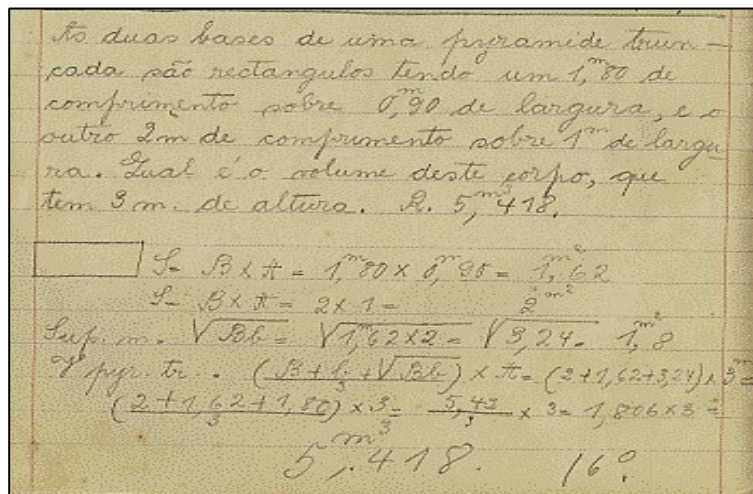 As duas bases de uma pyramide trun-
cada são rectangulos tendo um 1,ᵐ80 de
comprimento sobre 0,ᵐ90 de largura, e o
outro 2m de comprimento sobre 1ᵐ de largu-
ra. Qual é o volume deste corpo, que
tem 3 m. de altura. R. 5,ᵐ³418.
S= B x A = 1,ᵐ80 x 0,ᵐ90 = 1,ᵐ²62
S= B x A = 2 x 1 = 2ᵐ²
Sup. m. √Bb = √1,ᵐ62x2 = √3,24 = 1,ᵐ²8
V pyr. tr. = (B+b+√Bb)/3 x A = (2+1,62+3,24) x 3ᵐ =
(2+1,62+1,80)/3 x 3 = 5,42/3 x 3 = 1,806 x 3 =
5,ᵐ³418. 16º